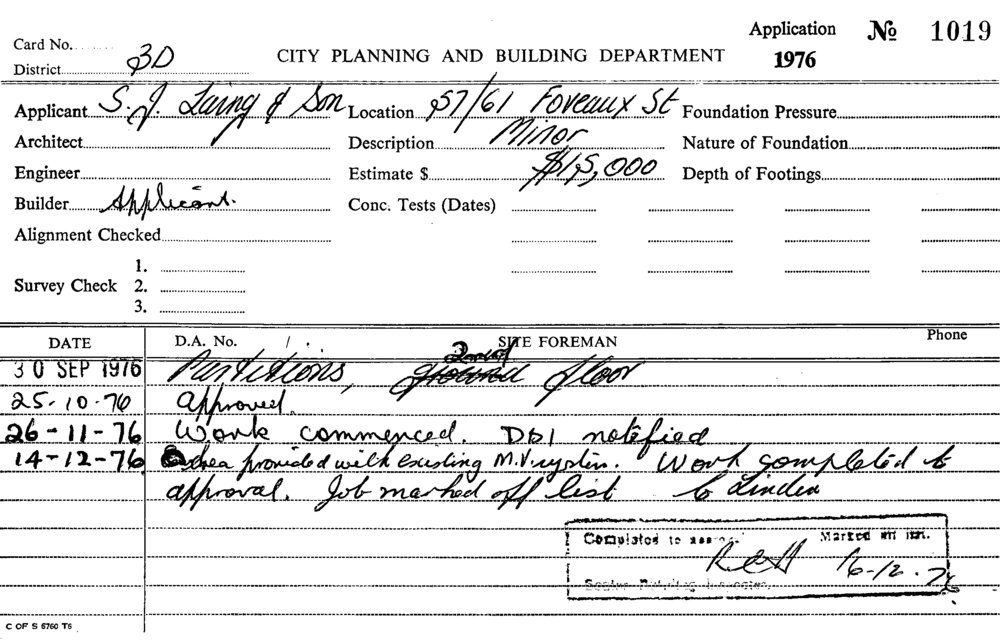 Application № 1019
Card No.
District 3D
CITY PLANNING AND BUILDING DEPARTMENT
1976
Applicant S. J. Laing & Son Location 57/61 Foveaux St Foundation Pressure
Architect Description Minor Nature of Foundation
Engineer Estimate $ $15,000 Depth of Footings
Builder Applicant. Conc. Tests (Dates)
Alignment Checked
1.
Survey Check 2.
3.
DATE D.A. No. SITE FOREMAN Phone
30 SEP 1976 Partitions, 2nd floor
25-10-76 Approved.
26-11-76 Work commenced. DBI notified
14-12-76 Area provided with existing M.V. system. Work completed to
approval. Job marked off list to
Completed to Marked off
16-12-76
C OF S 6760 T6